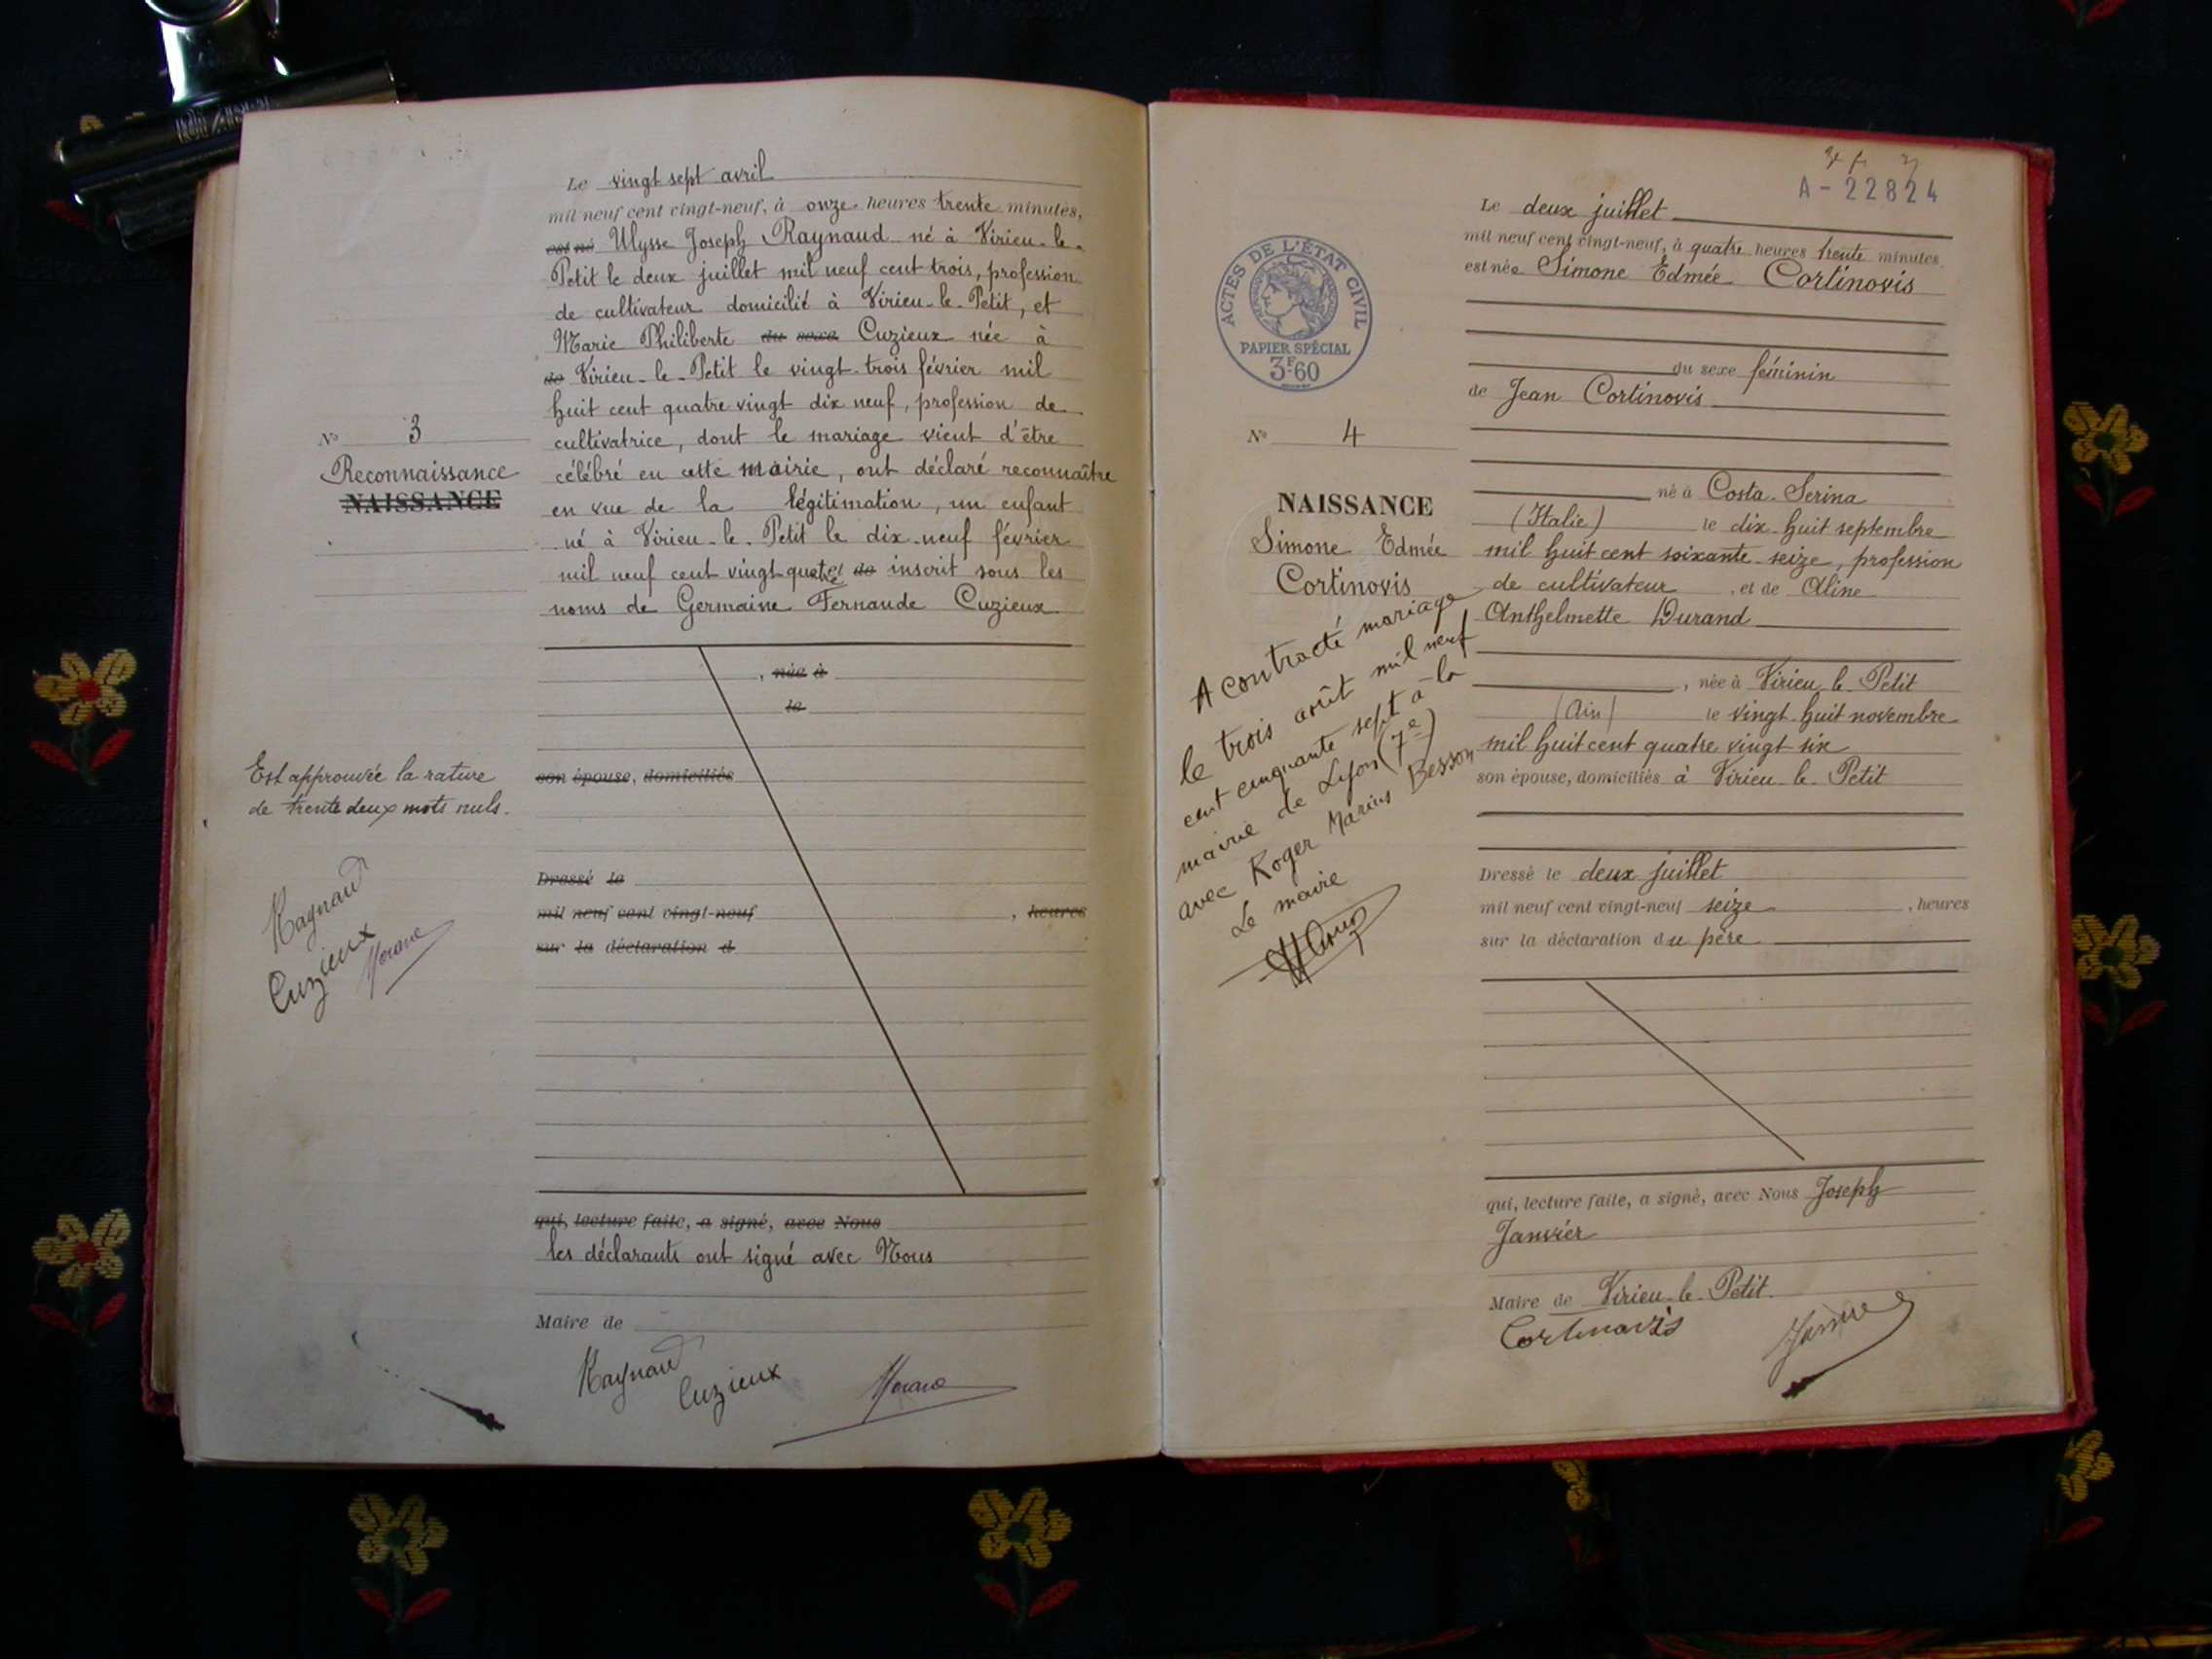 Le vingt sept avril
mil neuf cent vingt-neuf, à onze heures trente minutes,
est né Ulysse Joseph Raynaud né à Virieu-le-
Petit le deux juillet mil neuf cent trois, profession
de cultivateur domicilié à Virieu-le-Petit, et
Marie Philiberte du sexe Cuzieux née à
de Virieu-le-Petit le vingt-trois février mil
huit cent quatre vingt dix neuf, profession de
N° 3
cultivatrice, dont le mariage vient d'être
Reconnaissance
NAISSANCE
célébré en cette mairie, ont déclaré reconnaître
en vue de la légitimation, un enfant
né à Virieu-le-Petit le dix-neuf février
mil neuf cent vingt quatre et de inscrit sous les
noms de Germaine Fernande Cuzieux
, née à
le
Est approuvée la rature
de trente deux mots nuls.
son épouse, domiciliés
Raynaud
Cuzieux
Dressé le
mil neuf cent vingt-neuf , heures
sur la déclaration d
qui, lecture faite, a signé, avec Nous
les déclarants ont signé avec Nous
Maire de
Raynaud
Cuzieux
A-22824
ACTES DE L'ÉTAT CIVIL
PAPIER SPÉCIAL
3F60
N° 4
NAISSANCE
Simone Edmée
Cortinovis
A contracté mariage
le trois août mil neuf
cent cinquante sept à la
mairie de Lyon (7e)
avec Roger Marius Besson
Le maire
Le deux juillet
mil neuf cent vingt-neuf, à quatre heures trente minutes
est née Simone Edmée Cortinovis
du sexe féminin
de Jean Cortinovis
né à Costa-Serina
(Italie) le dix-huit septembre
mil huit cent soixante-seize, profession
de cultivateur , et de Aline
Anthelmette Durand
, née à Virieu-le-Petit
(Ain) le vingt-huit novembre
mil huit cent quatre vingt six
son épouse, domiciliés à Virieu-le-Petit
Dressé le deux juillet
mil neuf cent vingt-neuf seize , heures
sur la déclaration du père
qui, lecture faite, a signé, avec Nous Joseph
Janvier
Maire de Virieu-le-Petit.
Cortinovis